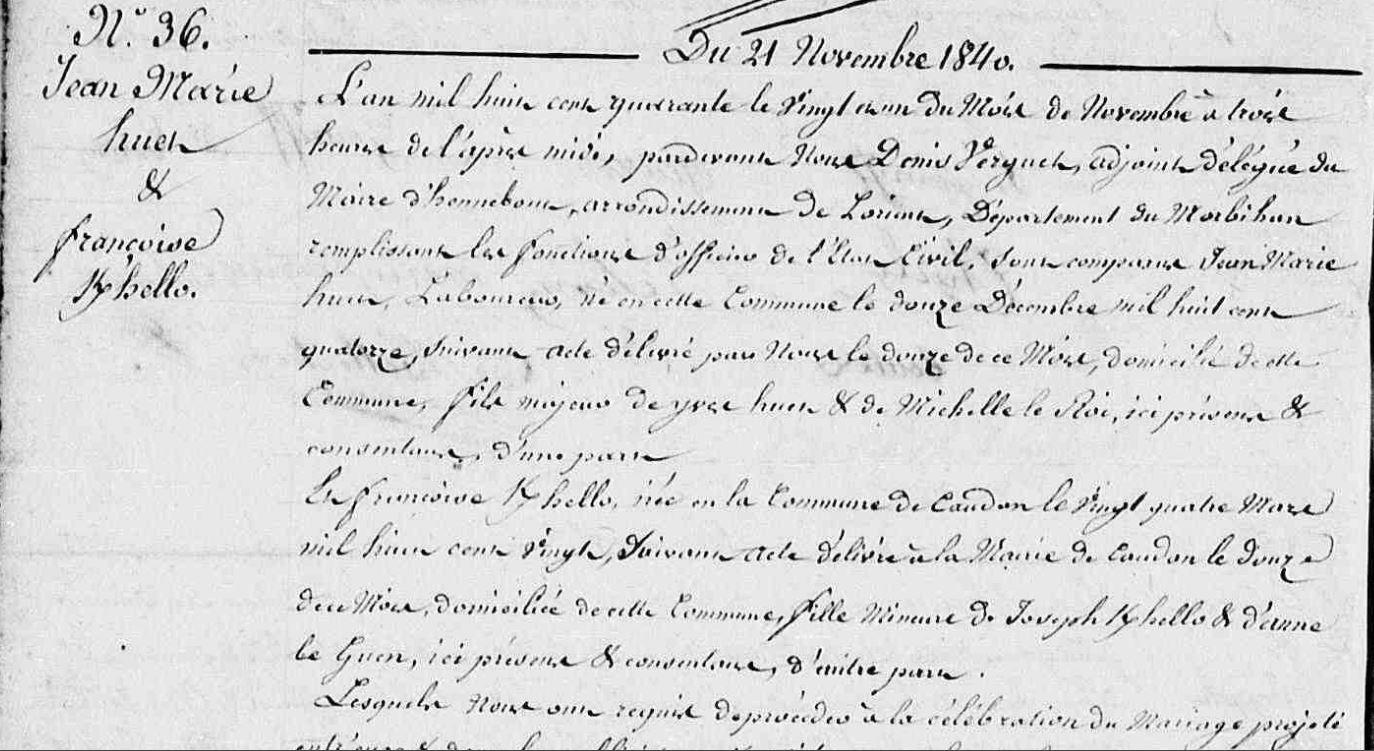 N° 36.
Jean Marie
huet
&
françoise
K/hello.
Du 21 Novembre 1840.
L'an mil huit cent quarante le vingt et un du Mois de Novembre à trois
heures de l'après midi, pardevant Nous Denis Verguet, adjoint délégué du
Maire d'hennebont, arrondissement de Lorient, Département du Morbihan
remplissant les fonctions d'officier de l'Etat Civil, sont comparus Jean Marie
huet, Laboureur, né en cette Commune le douze Décembre mil huit cent
quatorze, suivant acte délivré par Nous le douze de ce Mois, domicilié de cette
Commune, fils majeur de yves huet & de Michelle le Roi, ici présens &
consentans, d'une part
Et françoise K/hello, née en la Commune de Caudan le vingt quatre Mars
mil huit cent vingt, suivant acte délivré à la Mairie de Caudan le douze
de ce Mois, domiciliée de cette Commune, fille Mineure de Joseph K/hello & d'anne
le Guen, ici présens & consentans, d'autre part.
Lesquels Nous ont requis de procéder à la célébration du Mariage projeté
entr'eux &